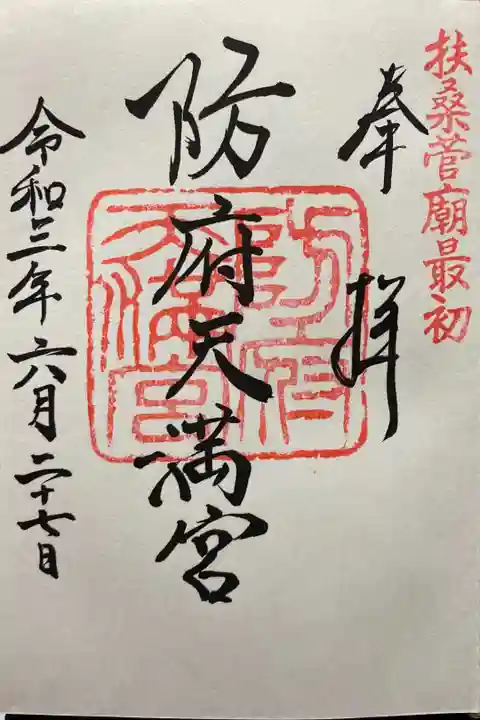 扶桑菅廟最初
奉拝
防府天満宮
令和三年六月二十七日